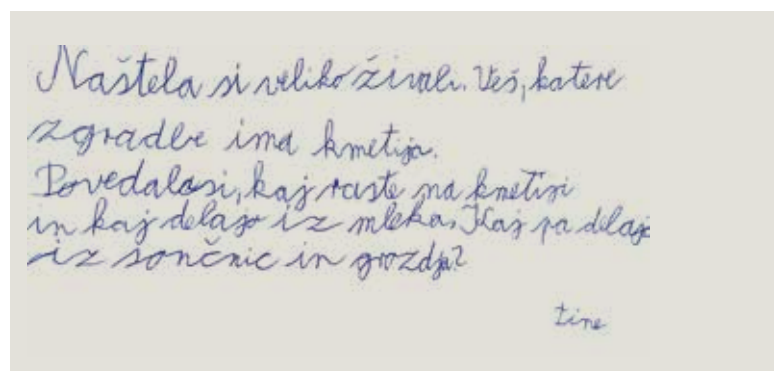 Naštela si veliko živali. Veš, katere
zgradbe ima kmetija.
Povedala si, kaj raste na kmetiji
in kaj delajo iz mleka. Kaj pa delajo
iz sončnic in grozdja?
Tine